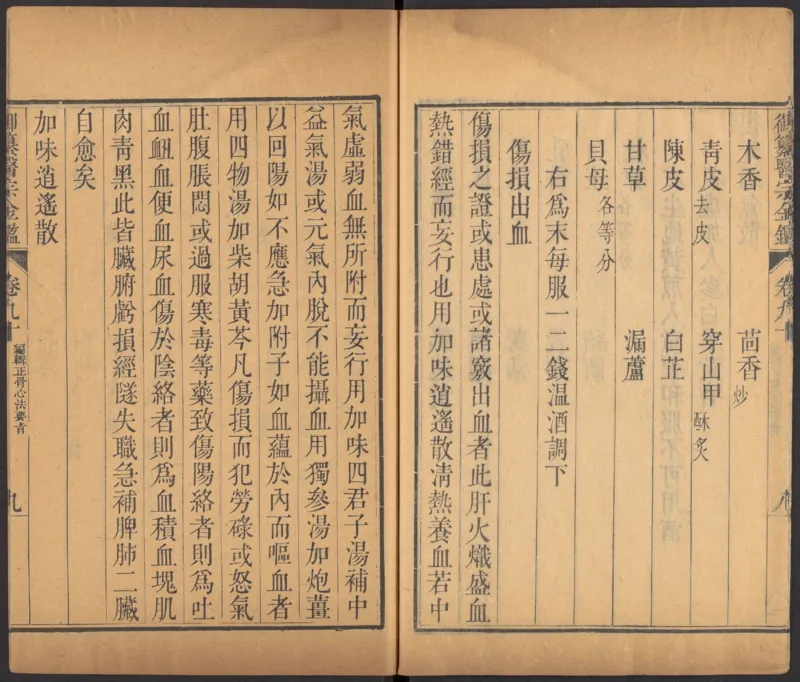 御纂醫宗金鑑 卷九十 八
木香 茴香炒
靑皮去皮 穿山甲酥炙
陳皮 白芷
甘草 漏蘆
貝母各等分
右爲末每服一二錢温酒調下
傷損出血
傷損之證或患處或諸竅出血者此肝火熾盛血
熱錯經而妄行也用加味逍遙散淸熱養血若中
氣虛弱血無所附而妄行用加味四君子湯補中
益氣湯或元氣內脫不能攝血用獨參湯加炮薑
以回陽如不應急加附子如血蘊於內而嘔血者
用四物湯加柴胡黃芩凡傷損而犯勞碌或怒氣
肚腹脹悶或過服寒毒等藥致傷陽絡者則爲吐
血衄血便血尿血傷於陰絡者則爲血積血塊肌
肉靑黑此皆臟腑虧損經隧失職急補脾肺二臟
自愈矣
加味逍遙散
御纂醫宗金鑑 卷九十 編輯正骨心法要旨 九